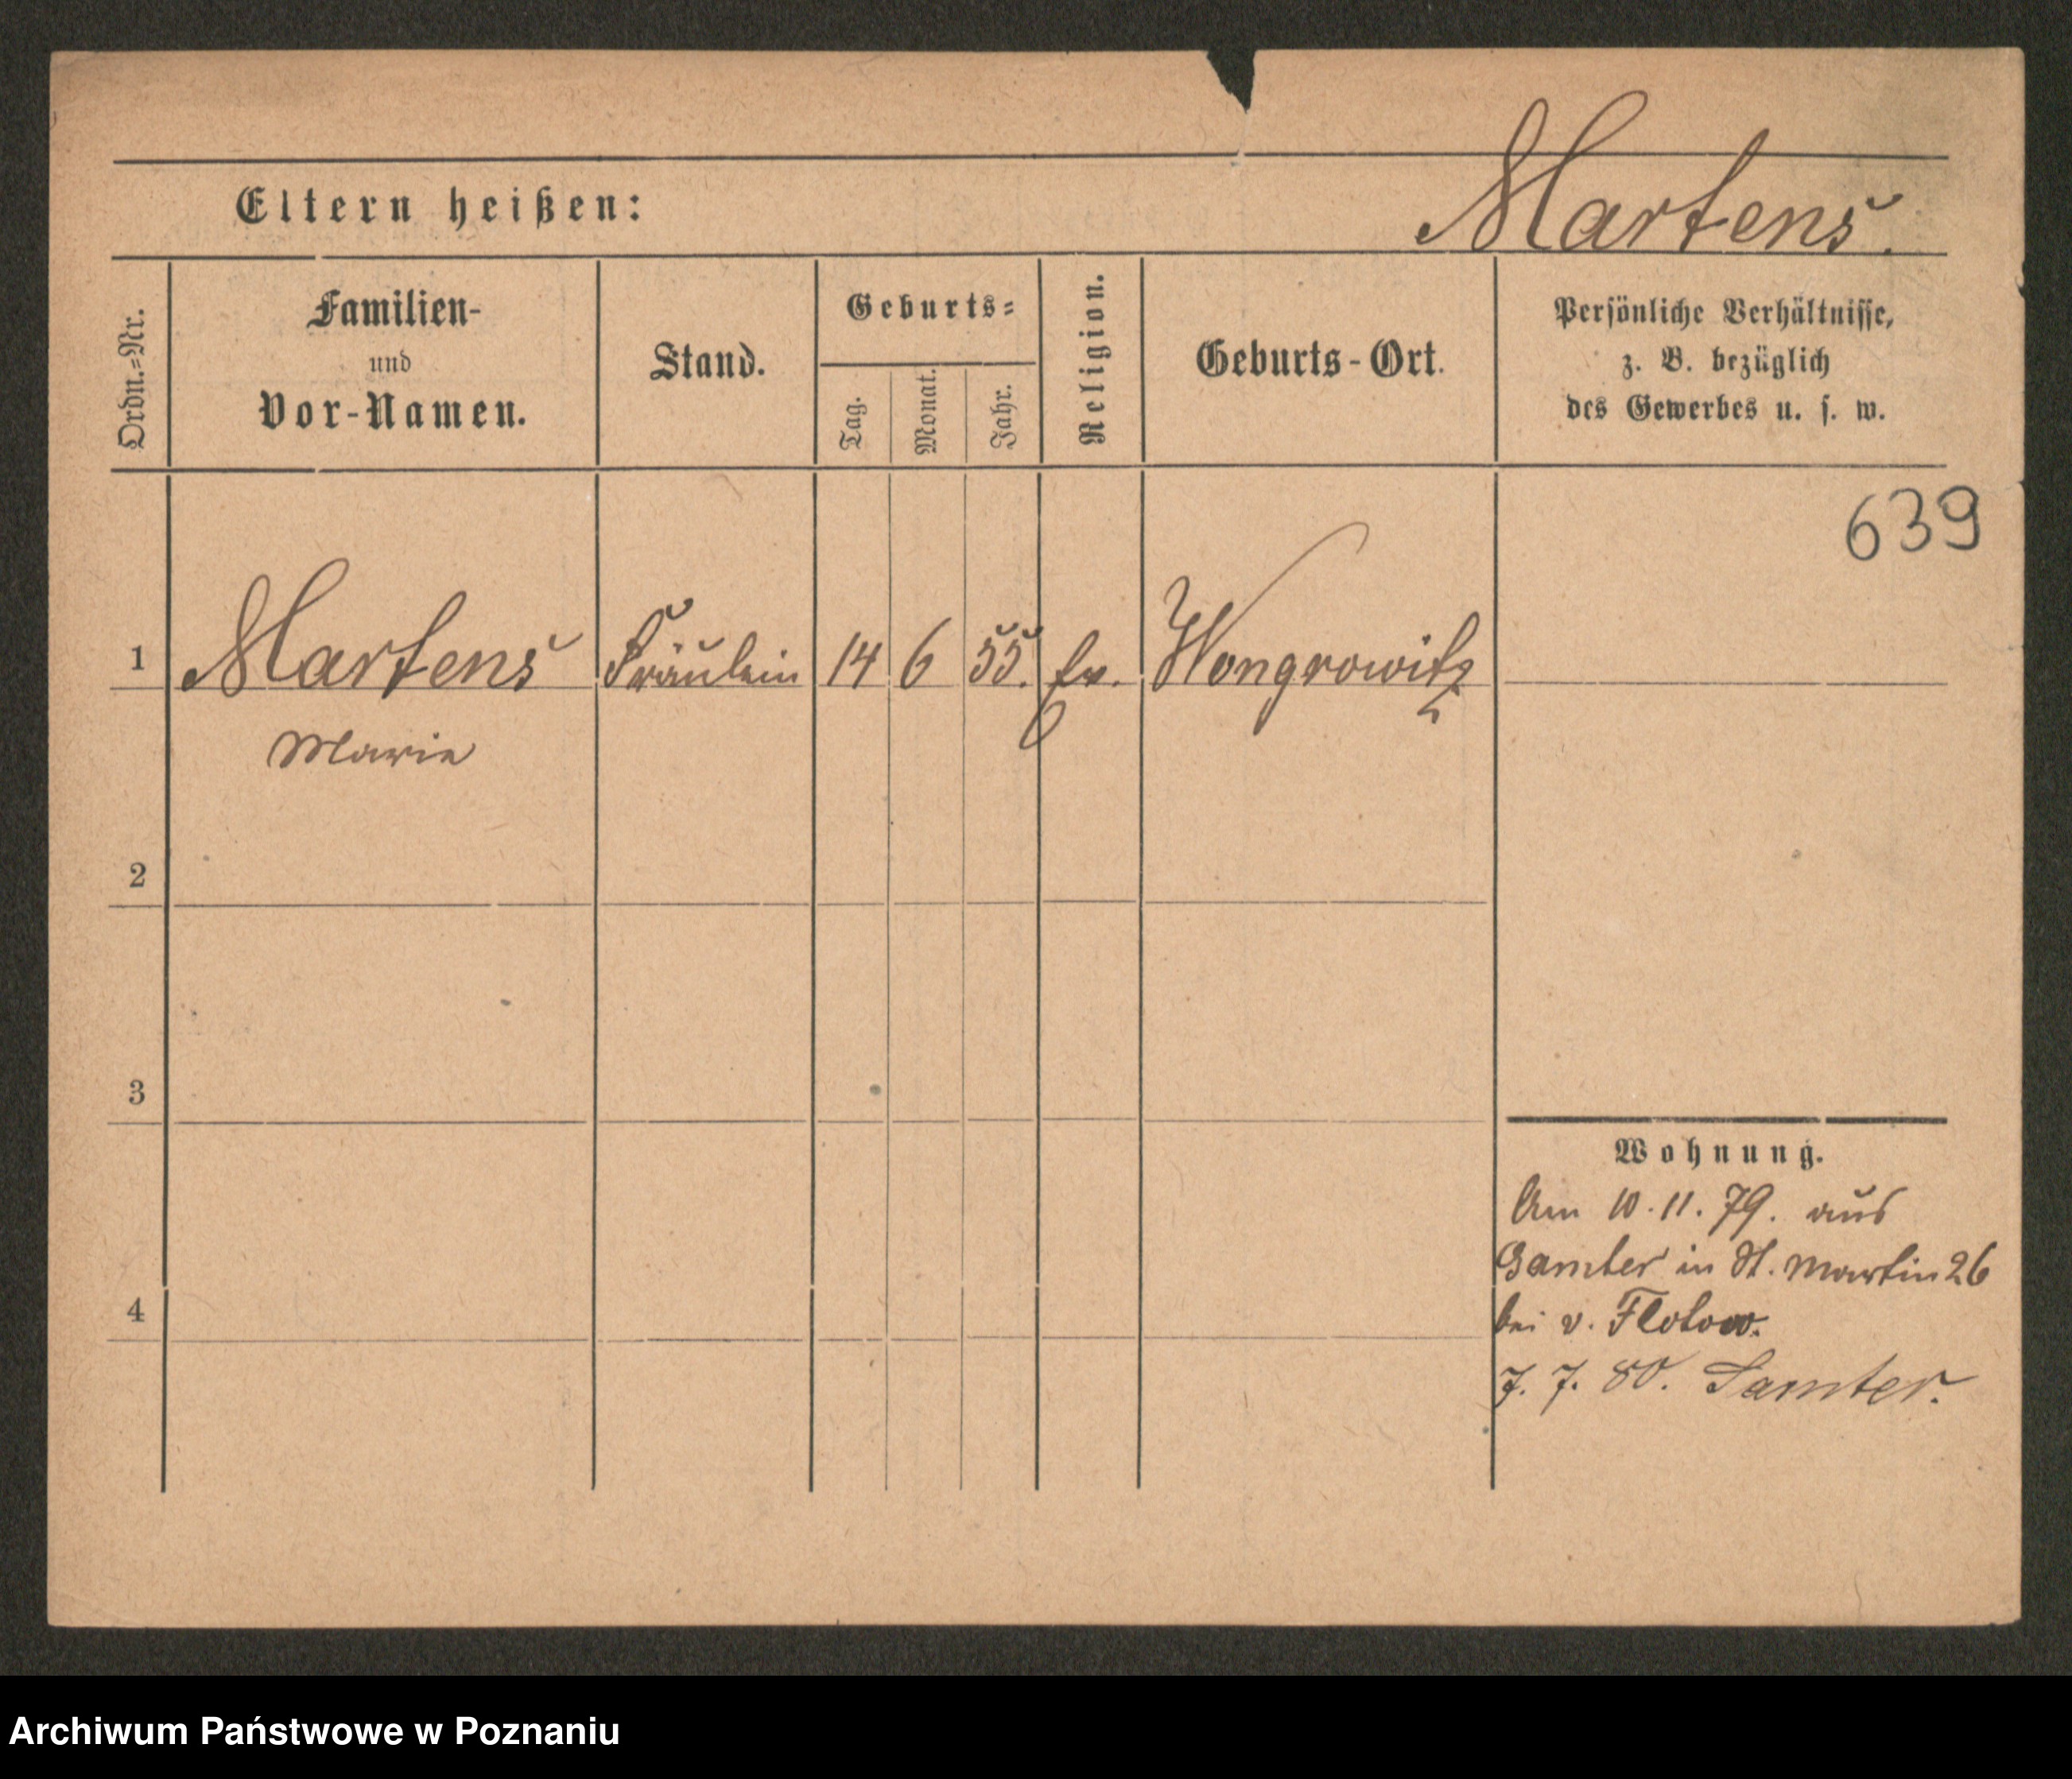 Martens.
Eltern heißen:
Ordn.=Nr.
Familien-
und
Vor-Namen.
Stand.
Geburts=
Tag.
Monat.
Jahr.
Religion.
Geburts-Ort.
Persönliche Verhältnisse,
z. B. bezüglich
des Gewerbes u. s. w.
639
1 Martens Fräulein 14 6 55. ev. Wongrowitz
Marie
2
3
4
Wohnung.
Am 10.11.79. aus
Samter in St. Martin 26
bei v. Flotow.
7. 7. 80. Samter.
Archiwum Państwowe w Poznaniu